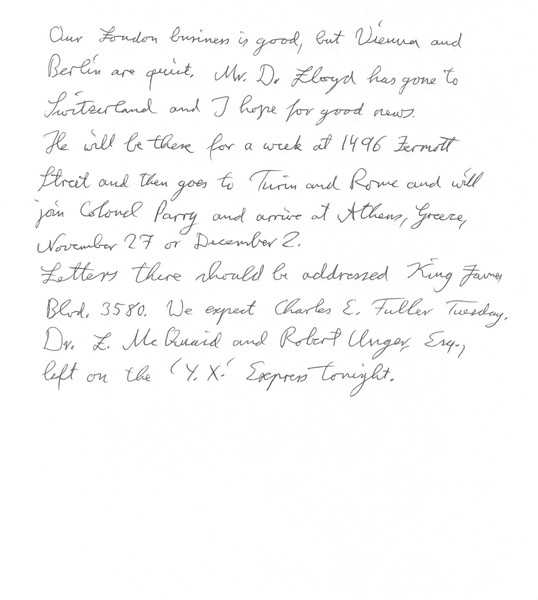 Our London business is good, but Vienna and
Berlin are quiet. Mr. D. Lloyd has gone to
Switzerland and I hope for good news.
He will be there for a week at 1496 Zermott
Street and then goes to Turin and Rome and will
join Colonel Parry and arrive at Athens, Greece,
November 27 or December 2.
Letters there should be addressed King James
Blvd. 3580. We expect Charles E. Fuller Tuesday.
Dr. L. McQuaid and Robert Unger, Esq.,
left on the 'Y.X.' Express tonight.